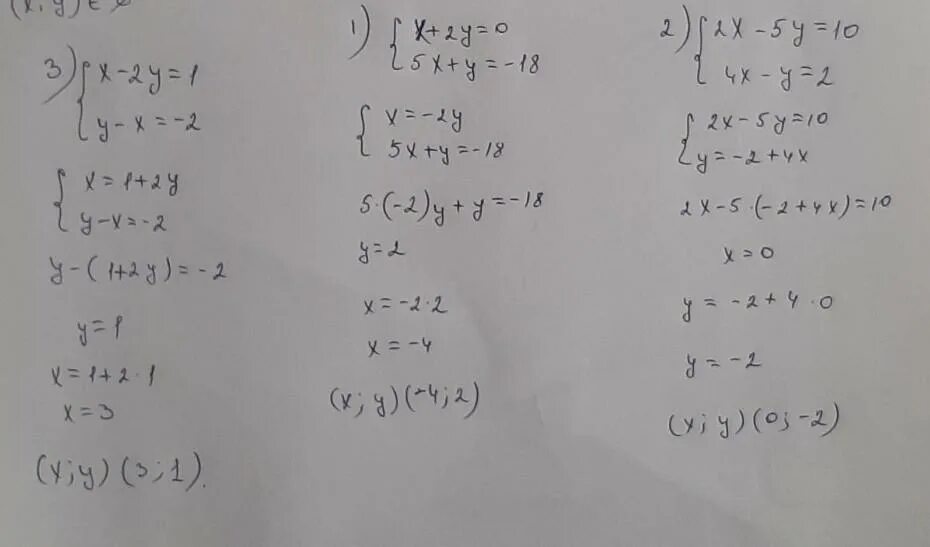 3) { x - 2y = 1
y - x = -2
{ x = 1+2y
y - x = -2
y - (1+2y) = -2
y = 1
x = 1+2·1
x = 3
(x;y) (3;1).
1) { x + 2y = 0
5x + y = -18
{ x = -2y
5x + y = -18
5·(-2)y + y = -18
y = 2
x = -2·2
x = -4
(x; y) (-4; 2)
2) { 2x - 5y = 10
4x - y = 2
{ 2x - 5y = 10
y = -2 + 4x
2x - 5·(-2 + 4x) = 10
x = 0
y = -2 + 4·0
y = -2
(x; y) (0; -2)